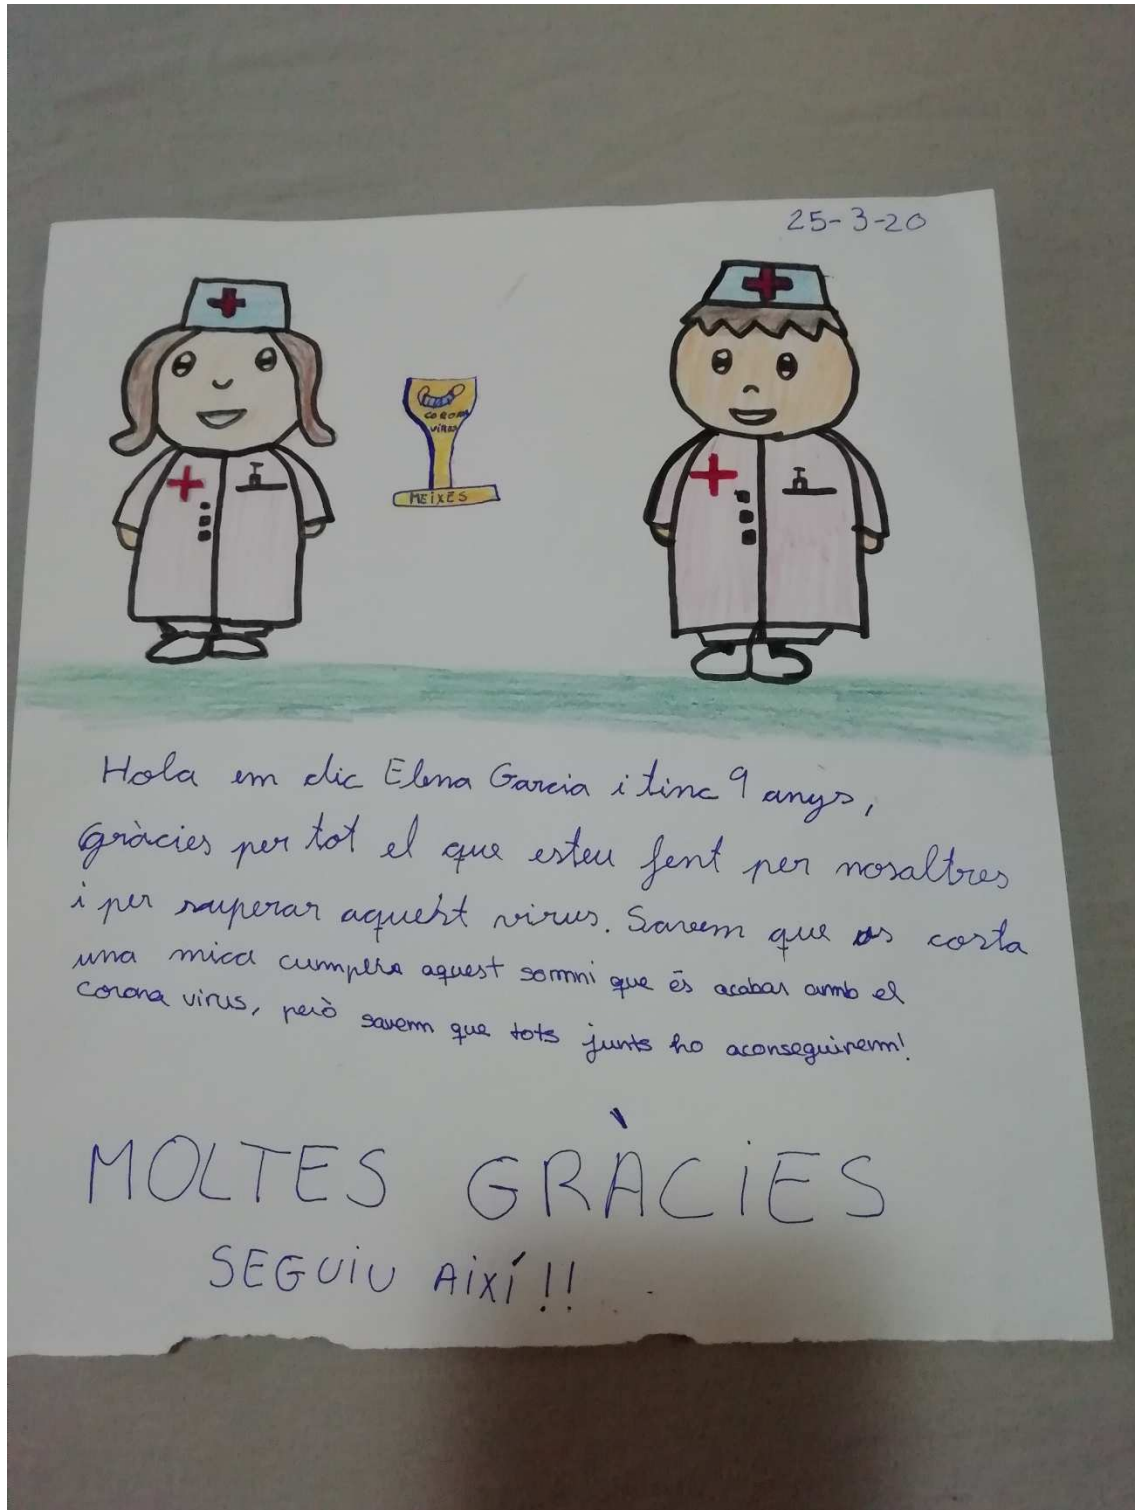 25-3-20
CORONA
VIRUS
MEIXES
Hola em dic Elena Garcia i tinc 9 anys,
Gràcies per tot el que esteu fent per nosaltres
i per superar aquest virus. Savem que os costa
una mica cumplir aquest somni que és acabar amb el
corona virus, però savem que tots junts ho aconseguirem!
MOLTES GRÀCIES
SEGUIU AIXÍ!!